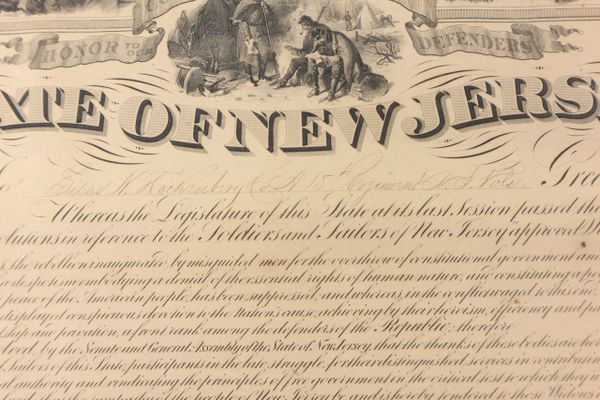 HONOR TO OUR DEFENDERS
ATE OF NEW JERS
Silas N. Co. A 15th Regiment N. J. Vols. Gree
Whereas the Legislature of this State at its last Session passed the
olutions in reference to the Soldiers and Sailors of New Jersey approved
the rebellion inaugurated by misguided men for the overthrow of constitutional government an
despotism embodying a denial of the essential rights of human nature, and constituting a p
peace of the American people, has been suppressed, and whereas, in the conflict waged to this end,
displayed conspicuous devotion to the Nation's cause, achieving by their heroism, efficiency and pa
ship and privation, a front rank among the defenders of the Republic; therefore
lved, by the Senate and General Assembly of the State of New Jersey, that the thanks of these bodies are he
Sailors of this State, participants in the late struggle, for their distinguished services in contributin
l authority and vindicating the principles of free government in the critical test to which they w
and that the sympathies of the people of New Jersey be and is hereby tendered to those Widows a